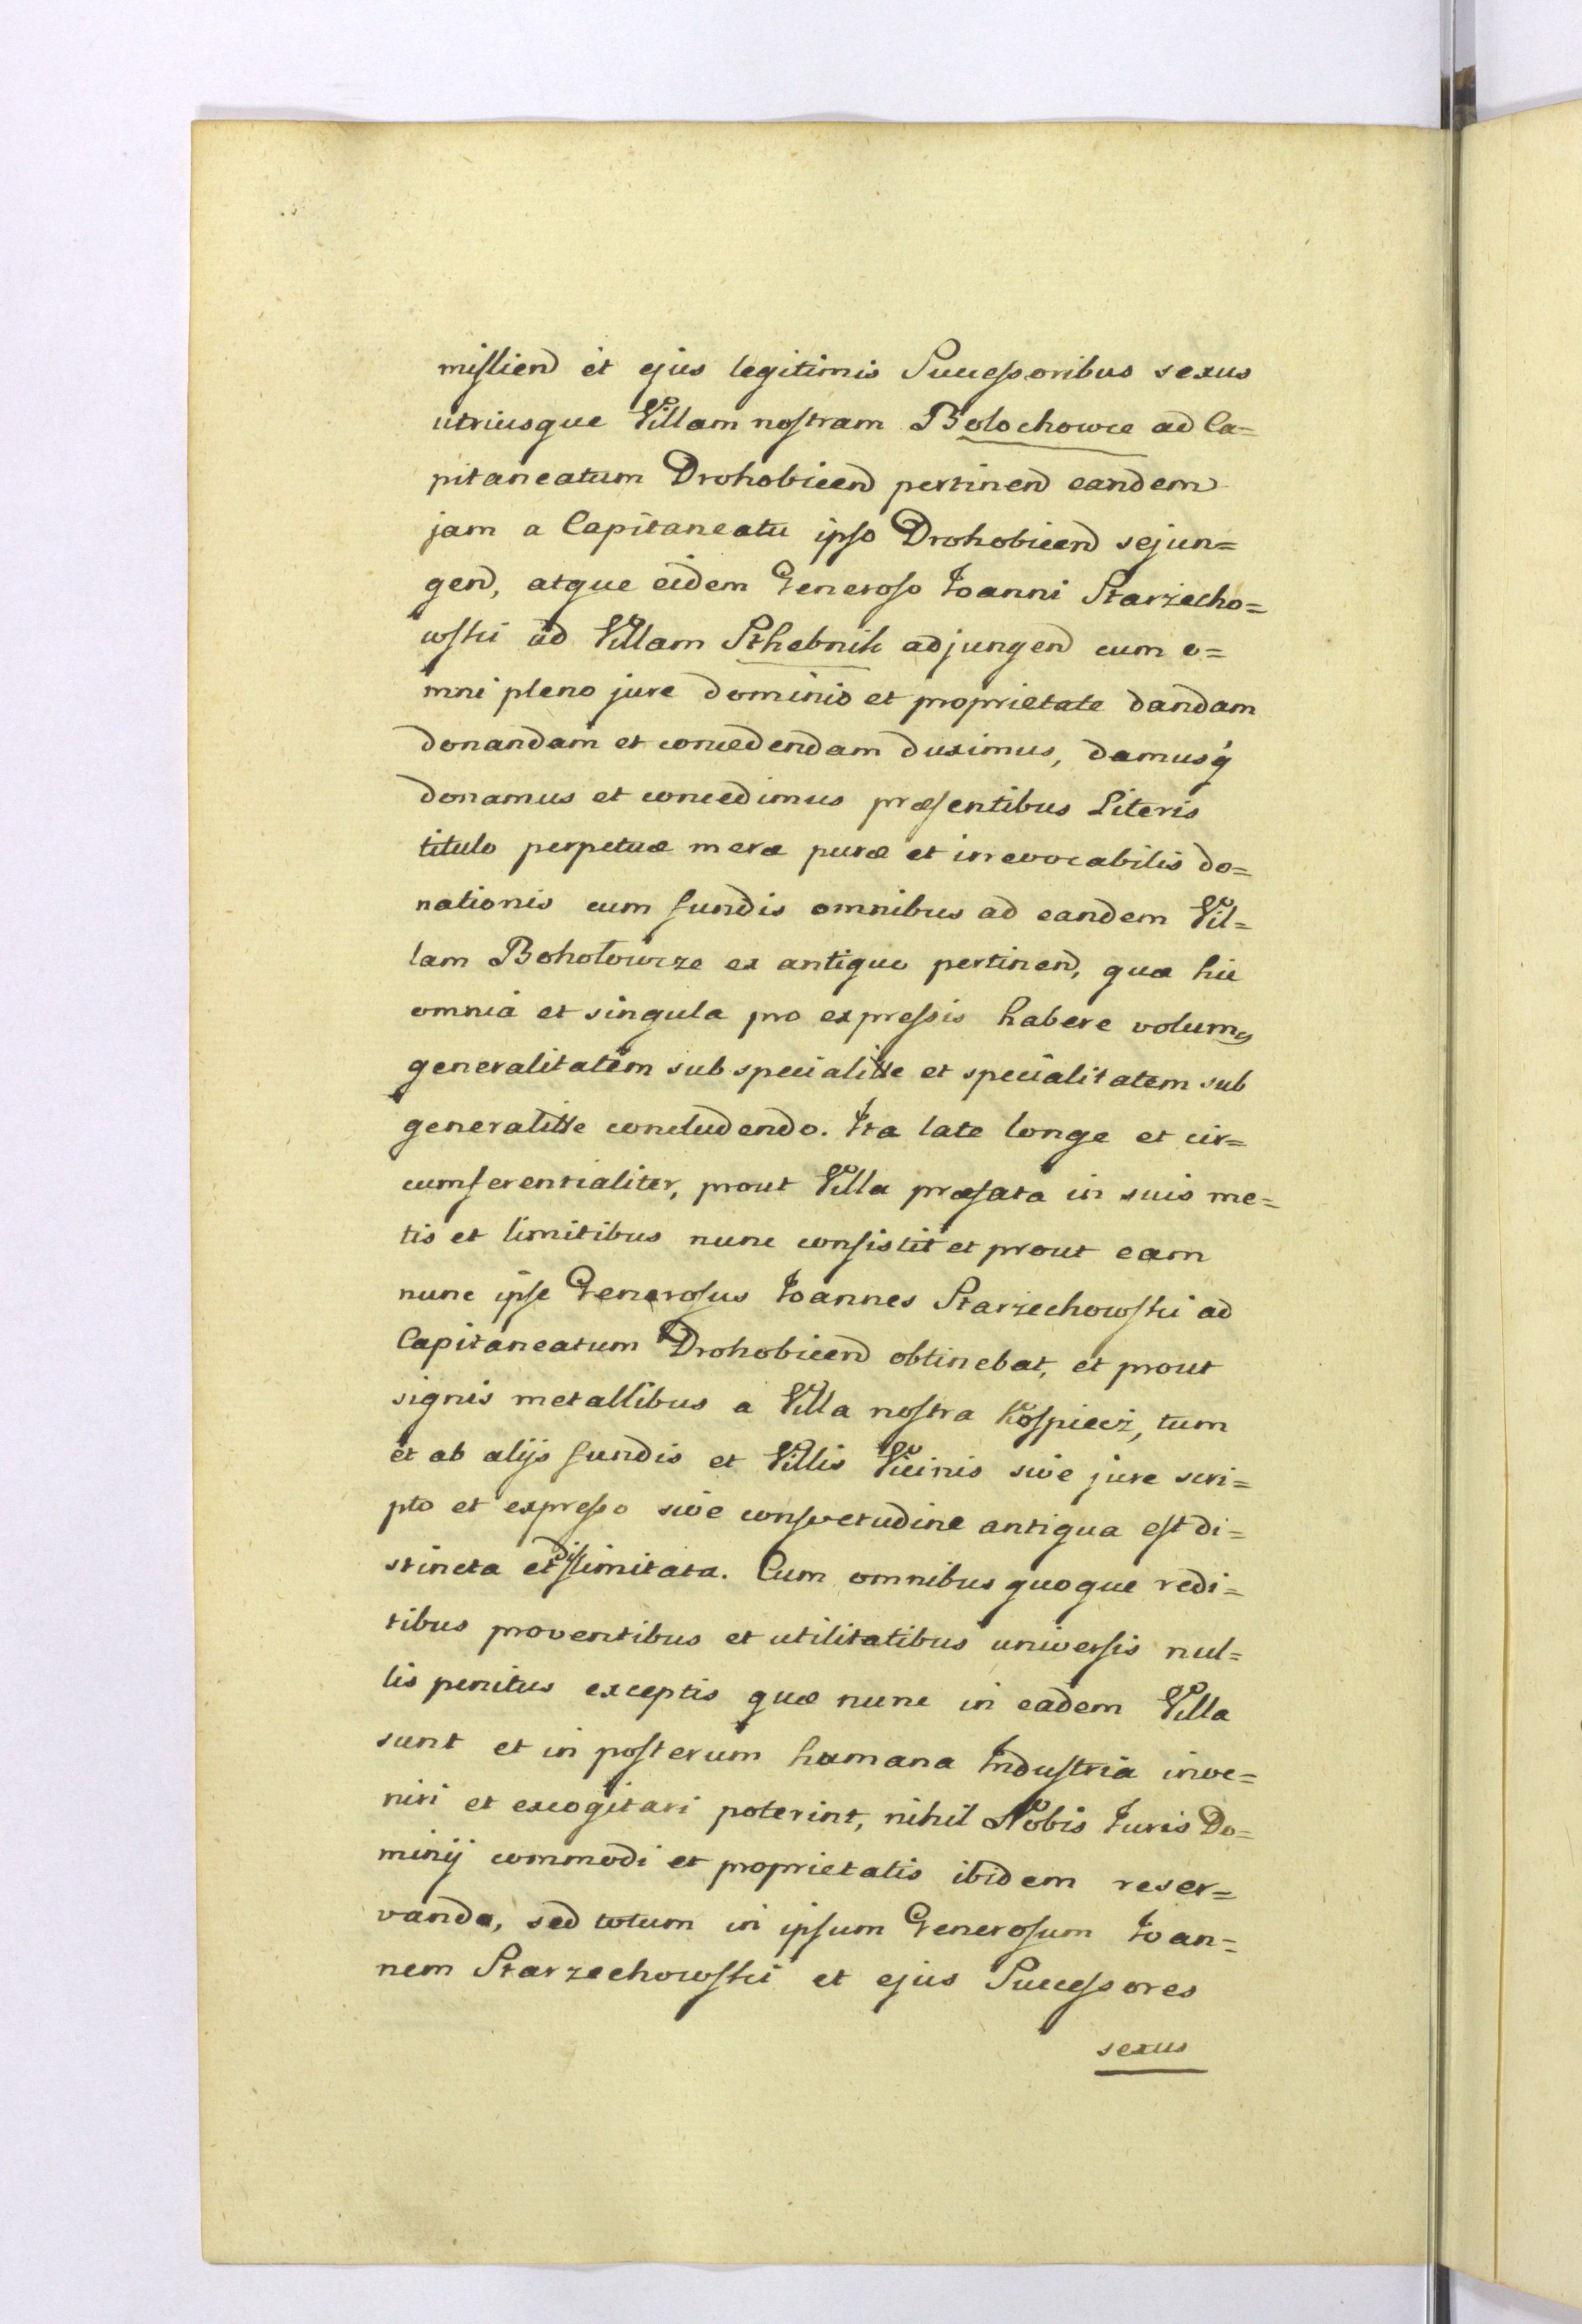 misliend et ejus legitimis Successoribus sexus
utriusque Villam nostram Bolochowce ad Ca=
pitaneatum Drohobicend pertinend eandem
jam a Capitaneatu ipso Drohobicend sejun=
gend, atque eidem Generoso Joanni Starzecho=
wski ad Villam Sthebnik adjungend cum o=
mni pleno jure dominio et proprietate dandam
donandam et concedendam duximus, damusq́
donamus et concedimus præsentibus Literis
titulo perpetuæ meræ puræ et irrevocabilis do=
nationis cum fundis omnibus ad eandem Vil=
lam Bohołowcze ex antiquo pertinend, quæ hic
omnia et singula pro expressis habere volumus
generalitatem sub specialitte et specialitatem sub
generalitte concludendo. Ita late longe et cir=
cumferentialiter, prout Villa præfata in suis me=
tis et limitibus nunc consistit et prout eam
nunc ipse Generosus Joannes Starzechowski ad
Capitaneatum Drohobicend obtinebat, et prout
signis metallibus a Villa nostra Kospiecż, tum
et ab alijs fundis et Villis Vicinis sive jure scri=
pto et expresso sive consvetudine antiqua est di=
stincta et dislimitata. Cum omnibus quoque redi=
tibus proventibus et utilitatibus universis nul=
lis penitus exceptis quæ nunc in eadem Villa
sunt et in posterum humana Industria inve=
niri et excogitari poterint, nihil Nobis Juris Do=
minij commodi et proprietatis ibidem reser=
vando, sed totum in ipsum Generosum Joan=
nem Starzechowski et ejus Successores
sexus